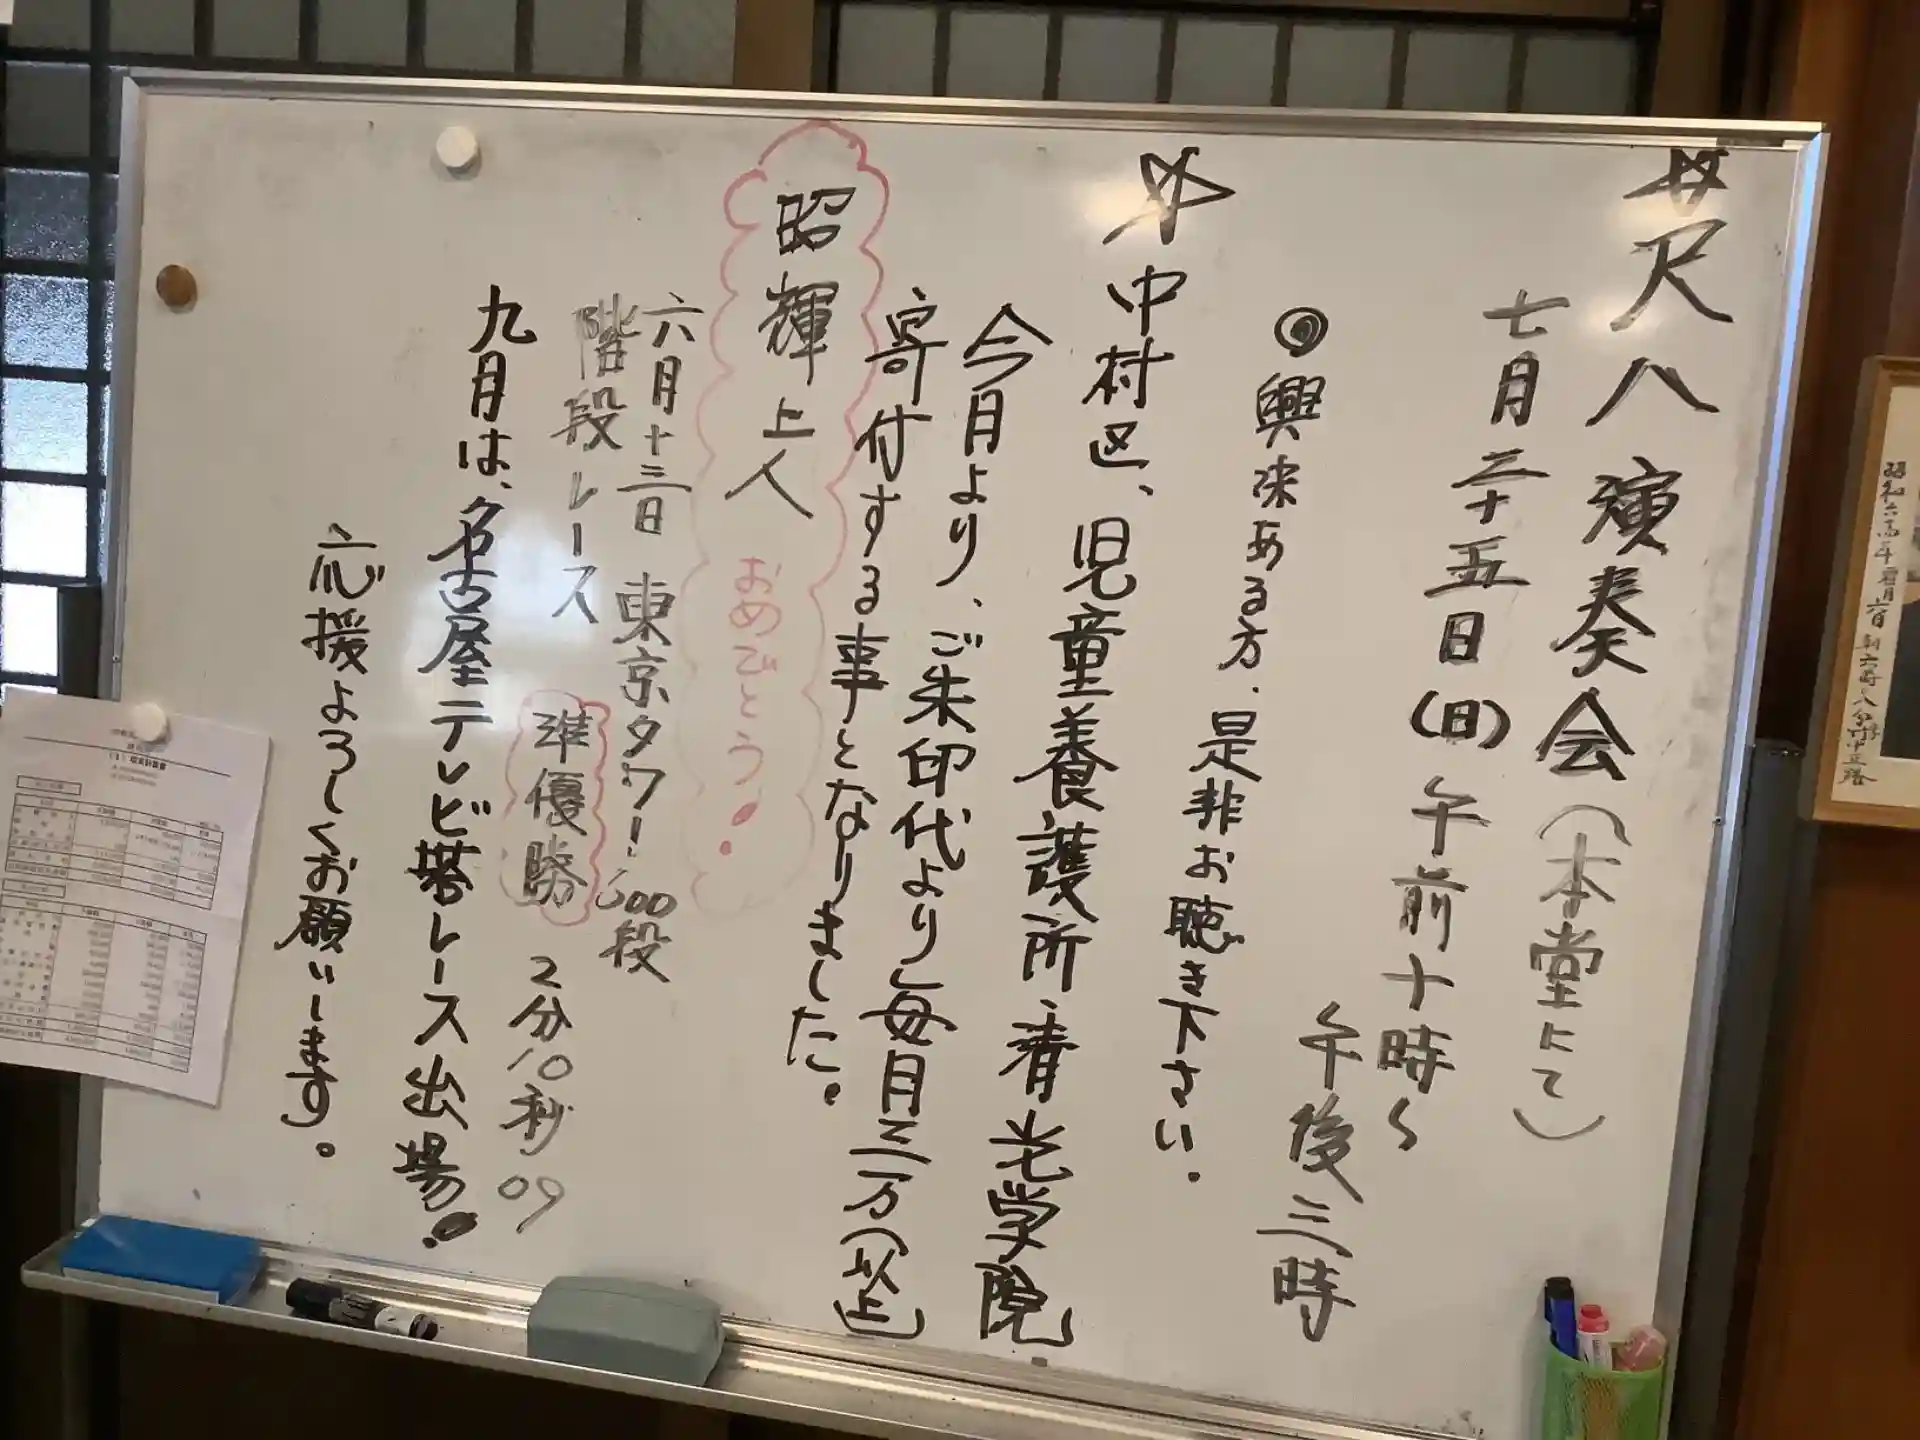 ☆尺八演奏会(本堂にて)
七月二十五日(日)午前十時〜
午後三時
◎興味ある方、是非お聴き下さい.
☆中村区、児童養護所・春光学院」
今月より、ご朱印代より毎月三万(以上)
寄付する事となりました。
昭輝上人 おめでとう!
六月十三日 東京タワー600段
階段レース 準優勝 2分10秒09
九月は、名古屋テレビ塔レース出場!
応援よろしくお願いします。